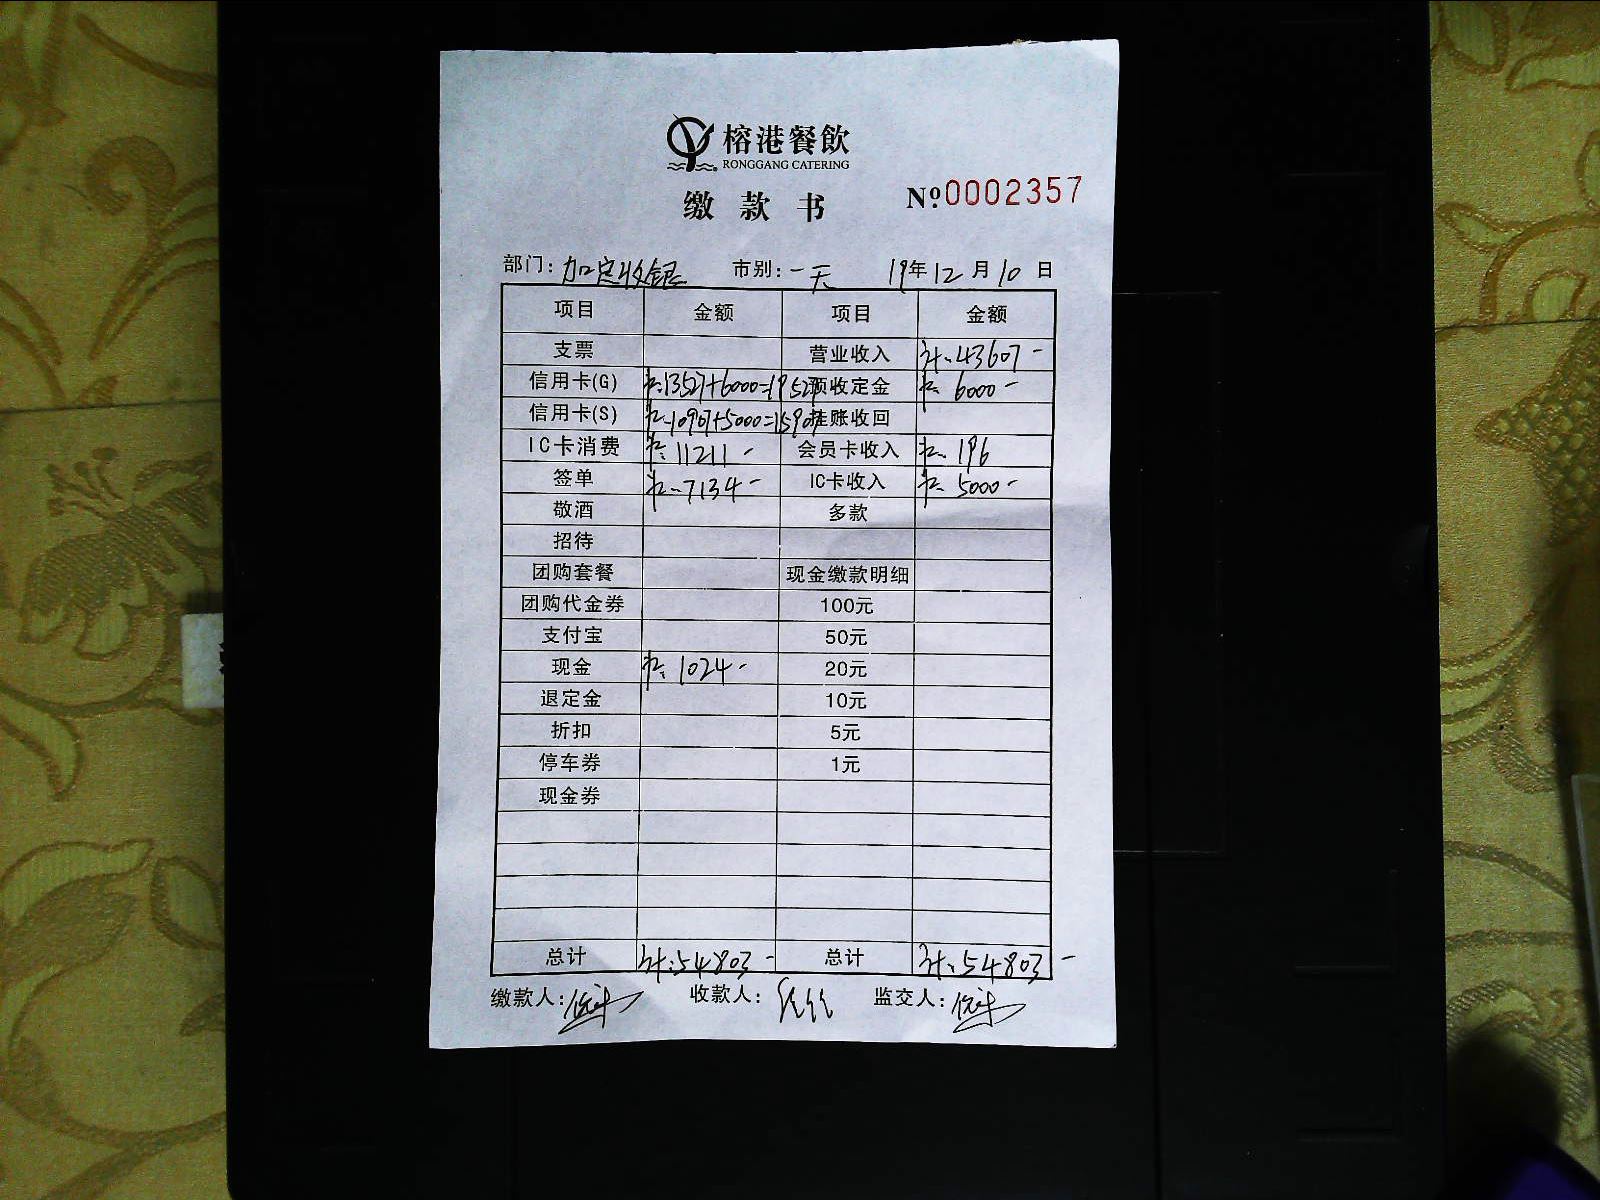 榕港餐飲
RONGGANG CATERING
缴款书
№0002357
部门：加定收银 市别：一天 19年12月10日
项目 金额 项目 金额
支票 营业收入 43607-
信用卡(G) 13527+6000=19527 预收定金 6000-
信用卡(S) 10907+5000=15907 挂账收回
IC卡消费 11211- 会员卡收入 196
签单 7134- IC卡收入 5000-
敬酒 多款
招待
团购套餐 现金缴款明细
团购代金券 100元
支付宝 50元
现金 1024- 20元
退定金 10元
折扣 5元
停车券 1元
现金券
总计 54803- 总计 54803-
缴款人： 收款人： 监交人：